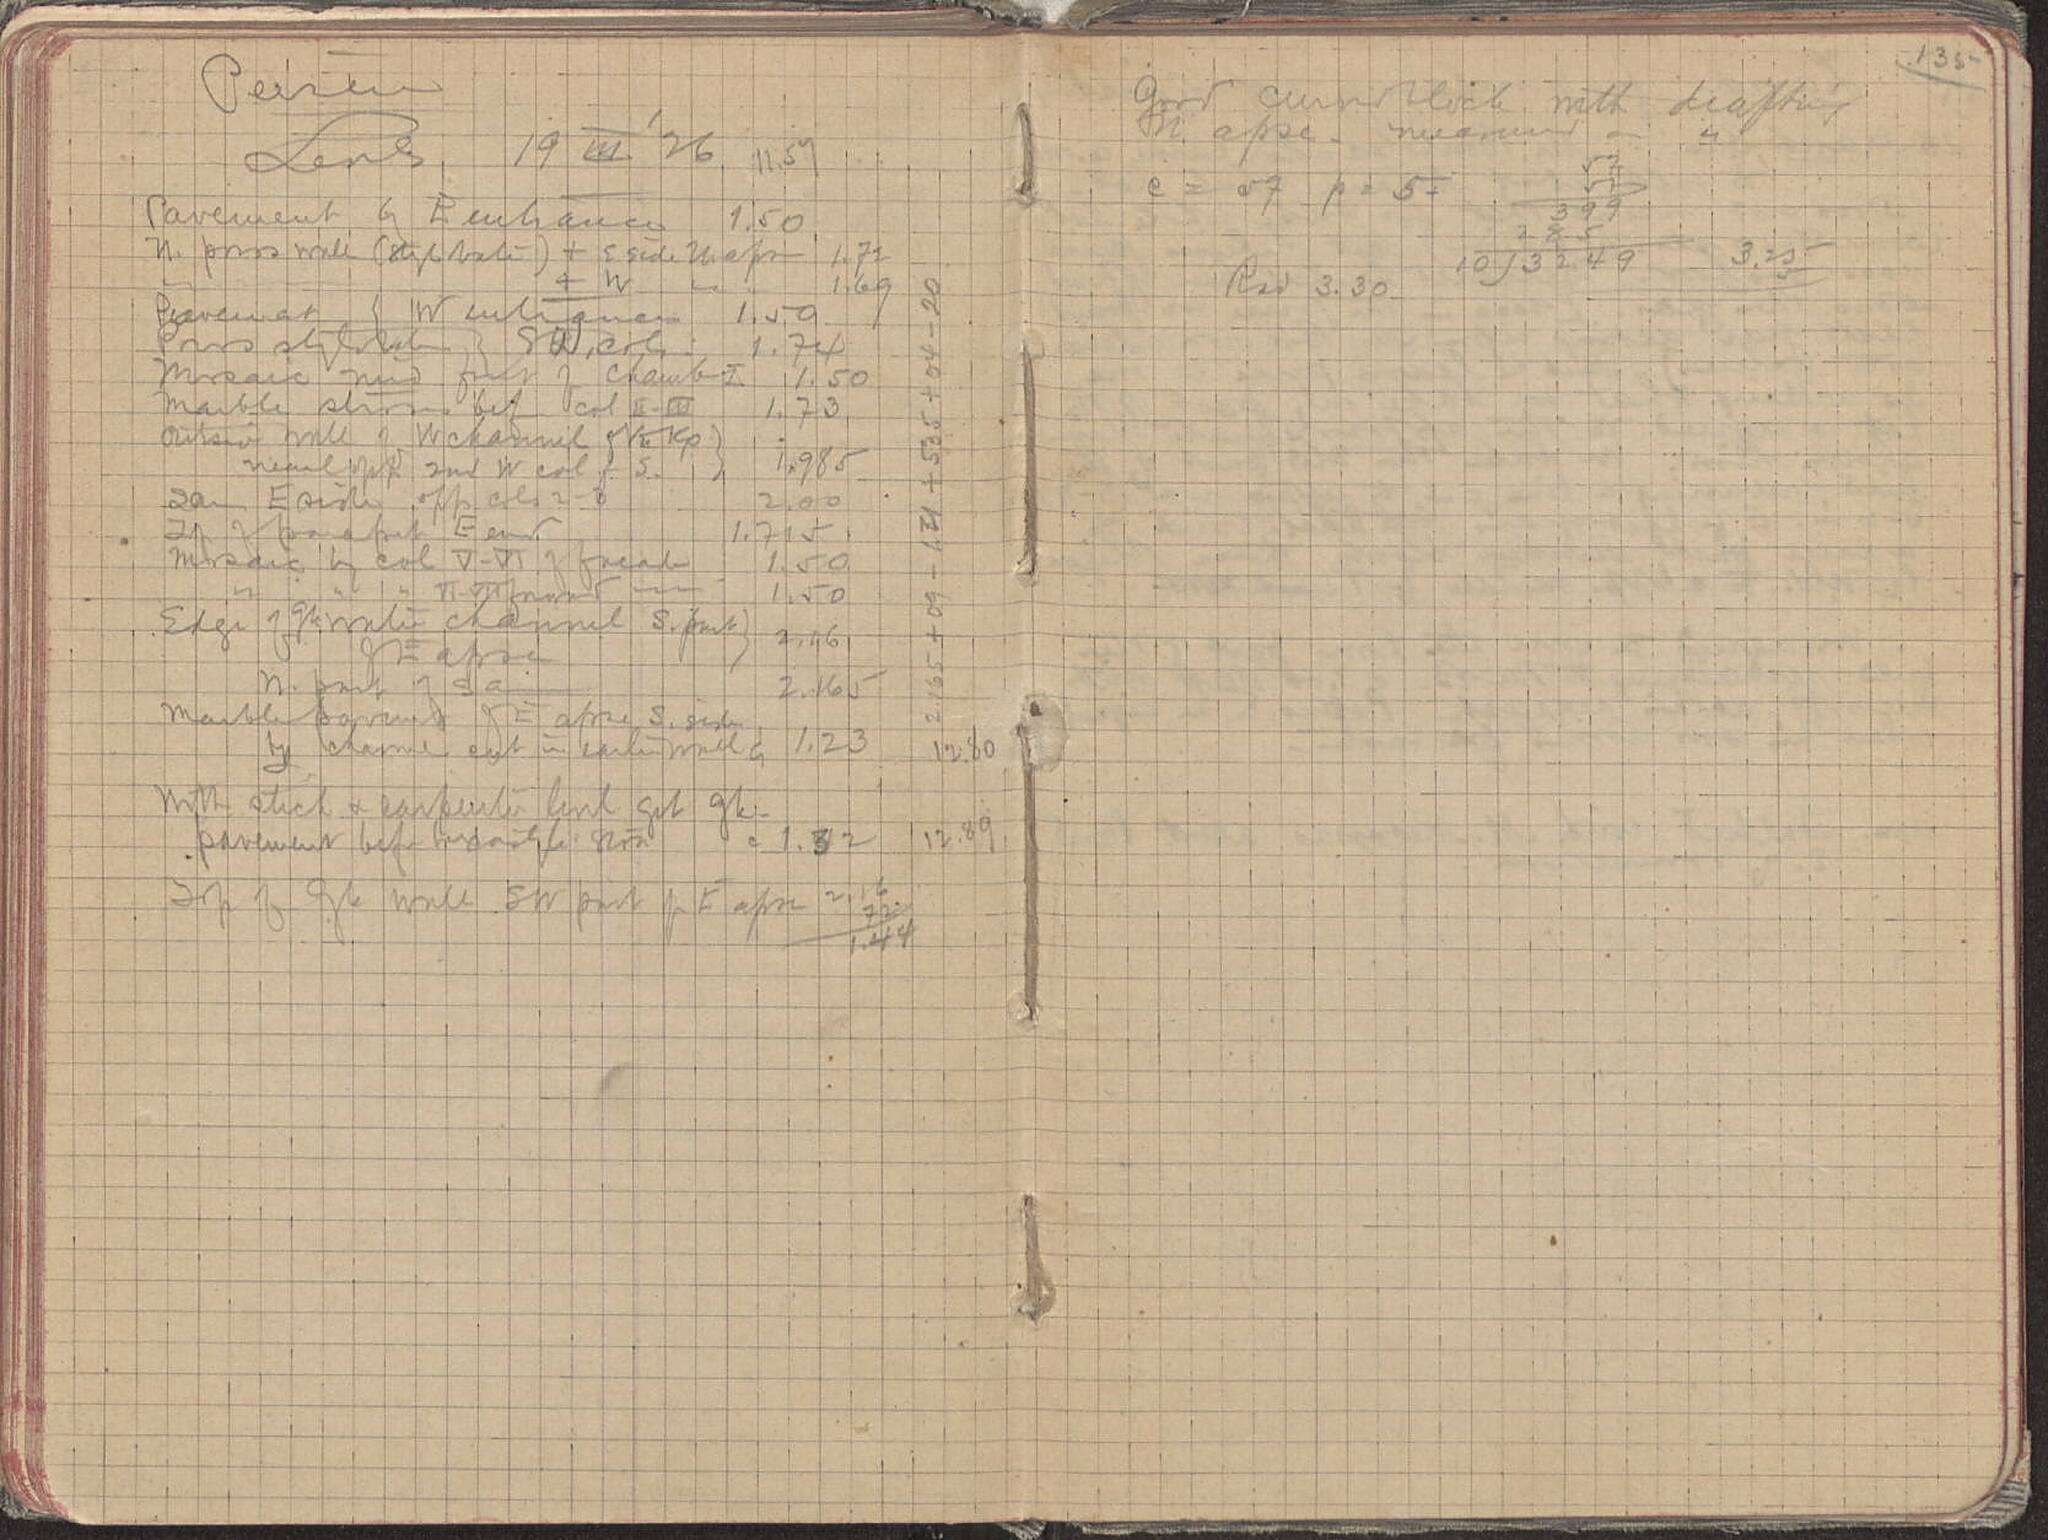 Peirene
Levels 19 III '26 11.59
Pavement by E entrance 1.50
N. poros wall (stylobate) + E side N apse 1.72
+ W " " 1.69
Pavement by W entrance 1.50
Poros stylobate by SW. col. 1.74
Mosaic mid front of Chamber I 1.50
Marble before col II-III 1.73
Outside wall of W channel of
nearly opp. 2nd W col f S. 1.985
Same E side opp cols 2-3 2.00
Top of parapet E end 1.715
Mosaic by col V-VI of facade 1.50
" " " II-III 1.50
Edge of Gk water channel S. part
of E apse 2.16
N. part of sa 2.165
Marble pavement of E apse S. side
by channel cut in earlier wall 1.23
12.80
With stick & carpenter level got Gk
pavement before = 1.32 12.89
Top of Gk wall SW part of E apse 2.16
72
1.44
2.165 + 09 - 1.21 + 535 + 04 - 20
135
Good curved block with drafting
N apse - measured
c = 57 p = 5
57
57
399
285
10 ) 3249 3.25
Rad 3.30